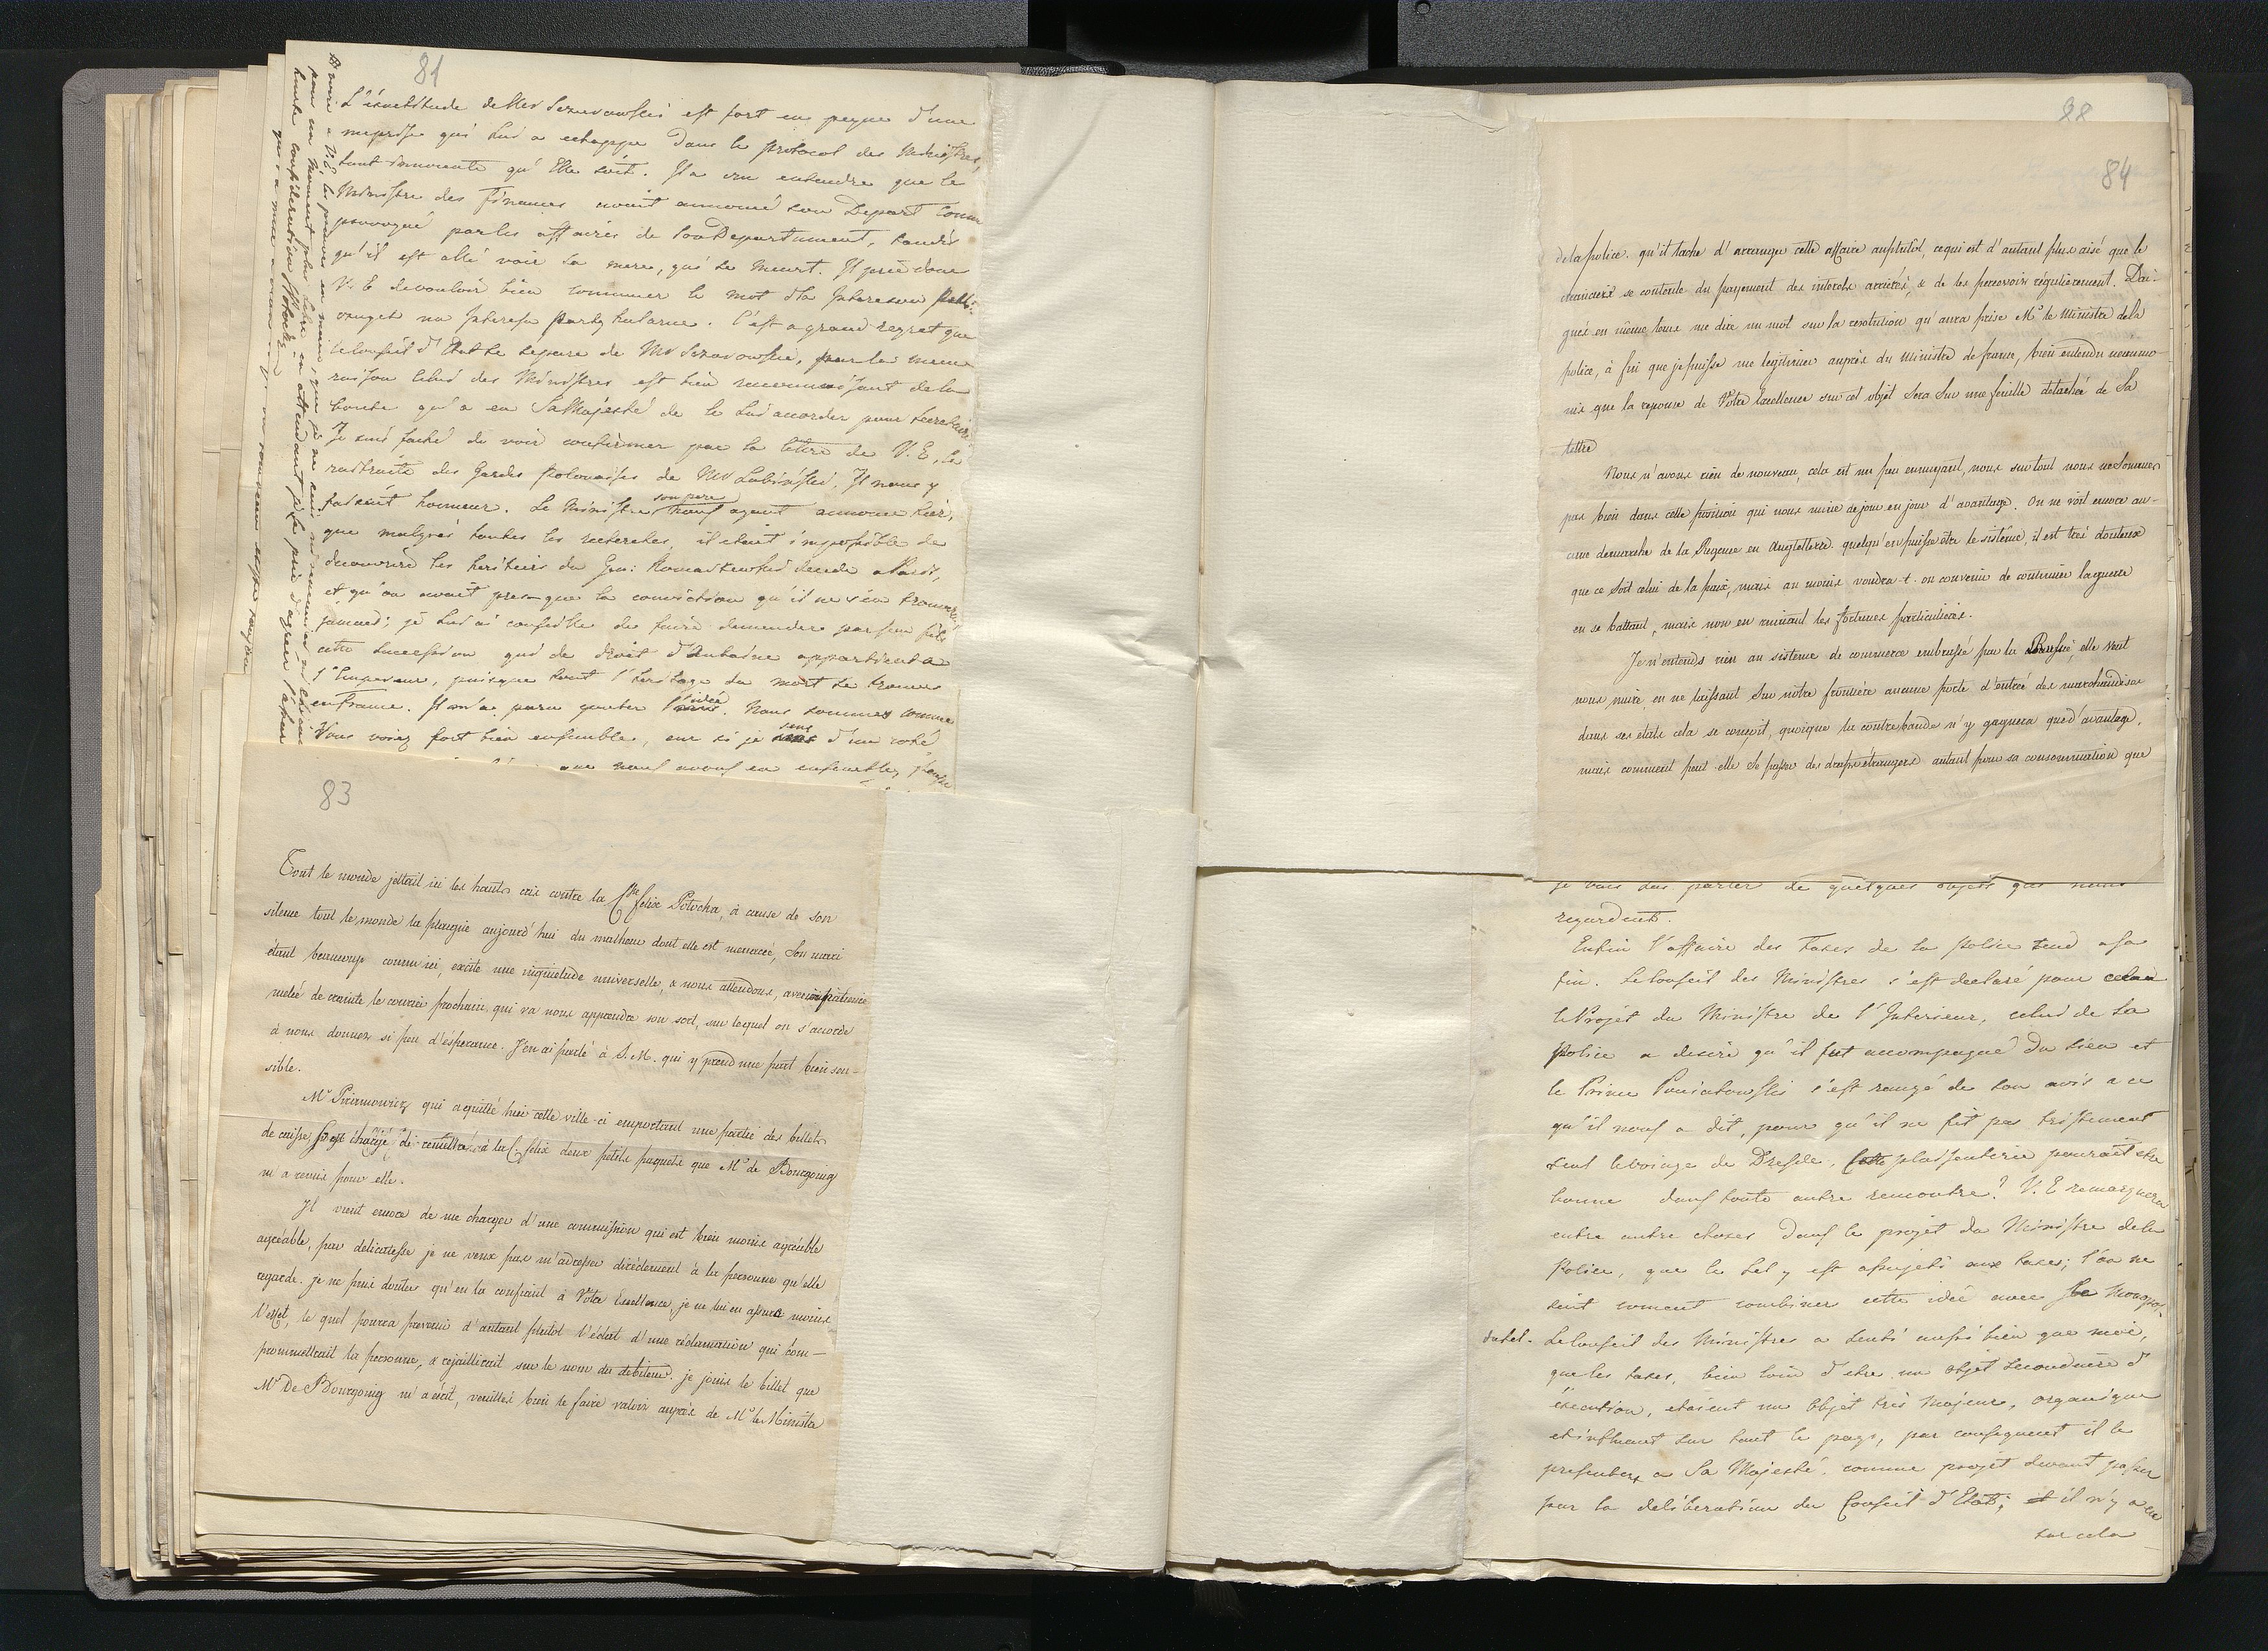 81
L'éxactitude de Mr Szczurowski est fort en peyne d'une
meprise qui lui a echappe dans le protocol des Ministres,
tout innocente qu'Elle soit. Il a cru entendre que le
Ministre des finances avait annoncé son Depart comme
provoqué par les affaires de son Departement, tandis
qu'il est allé voir sa mere, qui se meurt. Il prie donc
V. E de vouloir bien commuer le mot d'la Interessu
na Interessu partykularne. C'est a grand regret que
le Conseil d'Etat se separe de Mr Szczurowski, par la meme
raison celui des Ministres est bien reconnoissant de la
bonté qu'a eu Sa Majesté de le lui accorder pour Secretaire.
Je suis faché de voir confirmer par la lettre de V. E. la
rettraite des Gardes polonaises de Mr Lubinski. Il nous y
faisait honneur. Le Ministre son pere nous ayant annoncé hier,
que malgrés toutes les recherches, il etait impossible de
decouvrir les heritiers du Gen: decedé a Paris,
et qu'on avait presque la conviction qu'il ne s'en trouvera
jamais; je lui ai conseillé de faire demander par son fils
cette succession qui de droit d'Aubaine appartient a
l'Empereur, puisque tout l'heritage du mort se trouve
en France. Il m'a paru gouter l'idée. Nous sommes comme
Vous voiez fort bien ensemble, car si je sens d'un coté
que nous avons eu ensemble,
83
Tout le monde jettait ici les hauts cris contre la Csse felix Potocka, à cause de son
silence tout le monde la plaugie aujourd'hui du malheur dont elle est menacée, Son mari
étant beaucoup connu ici, excite une inquietude universelle, & nous attendons, avec impatience
melée de crainte le courrier prochain, qui va nous apprendre son sort, sur lequel on s'accorde
à nous donner si peu d'éspérance. J'en ai parlé à S. M. qui y prend une part bien sen-
sible.
Mr Piramowicz qui a quitté hier cette ville-ci emportant une partie des billets
de caisse, s'est chargé de remettre à la C. felix deux petits paquets que Mr de Bourgoing
m'a remis pour elle.
Il vient encore de me charger d'une commission qui est bien moins agréable
agréable, par délicatesse je ne veux pas m'adresser directement à la personne qu'elle
regarde. je ne puis douter qu'en la confiant à Votre Excellence, je ne lui en assure moins
l'effet, le quel pourra prevenir d'autant plutôt l'éclat d'une réclamation qui com-
promettrait la personne, & rejaillirait sur le nom du debiteur. je joins le billet que
Mr De Bourgoing m'a écrit, veuillés bien le faire valoir auprès de Mr le Ministre
88
84
de la police. qu'il tache d'arranger cette affaire aussitôt, ce qui est d'autant plus aisé que le
creanciers se contente du payement des interets arriérés, & de les percevoir régulierement. Dai-
gnés en même tems me dire un mot sur la resolution qu'aura prise Mr le Ministre de la
police, à fin que je puisse me legitimer auprès du Ministre de france, bien entendu neanmo-
nis que la reponse de Votre Excellence sur cet objet Sera Sur une feuille détachée de Sa
lettre
Nous n'avons rien de nouveau, cela est un peu ennuyant, nous surtout nous ne Sommes
pas bien dans cette position qui nous mine de jour en jour d'avantage. On ne voit encore au-
cune demarche de la Regence en Angleterre. quelqu'en puisse être le sistême, il est trés douteux
que ce soit celui de la paix, mais au moins voudra-t-on convenir de continuer la guerre
en se battant, mais non en ruinant les fortunes particulieres.
Je n'entends rien au sisteme de commerce embrassé par la Russie, elle veut
nous nuire, en ne laissant Sur notre frontière aucune porte d'entrée des marchandises
dans ses etats cela se conçoit, quoique la contrebande n'y gagnera que d'avantage,
mais comment peut-elle Se passer des draps étrangers autant pour sa consommation que
je vais Lui parler de quelques objets qui nous
regardent.
Enfin l'affaire des Taxes de la police tend a sa
fin. Le Conseil des Ministres s'est declaré pour
le Projet du Ministre de l'Interieur, celui de la
Police a desiré qu'il fut accompagné du sien et
le Prince Poniatowski s'est rangé de son avis a ce
qu'il nous a dit, pour qu'il ne fit pas tristement
seul le voiage de Dresde, Cette plaisenterie pourait etre
bonne dans toute autre rencontre! V. E remarquera
entre autre choses dans le projet du Ministre de la
Police, que le sel y est assujeti aux taxes; l'on ne
sait coment combiner cette idée avec le Monopol
du sel. Le Conseil des Ministres a senti aussi bien que moi,
que les taxes, bien loin d'etre un objet secondaire d'
éxecution, etaient un objet très majeur, organique
et influant sur tout le pays, par consequent il le
presentera a Sa Majesté comme projet devant passer
par la deliberation du Conseil d'Etat; il n'y a eu
sur cela